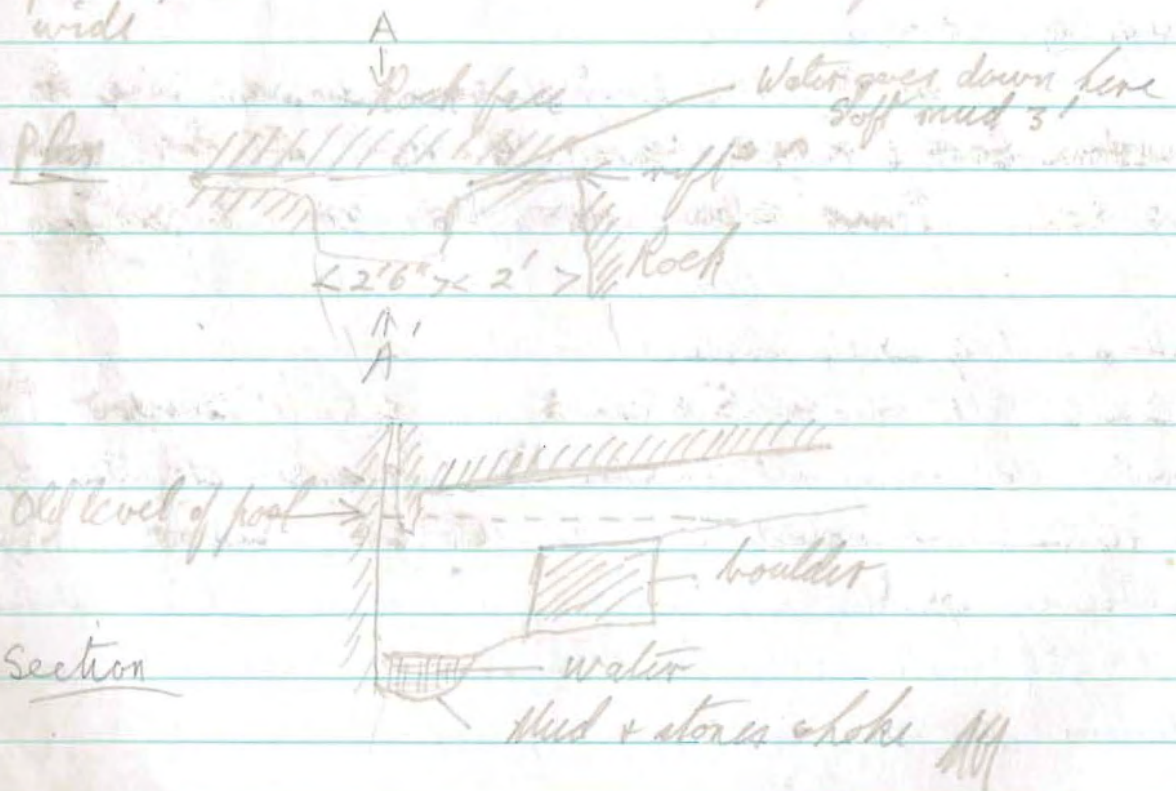 wide
A
Rock face
Water goes down here
Soft mud 3'
Plan
rift
Rock
< 2'6" >< 2' >
A
Old level of pool
boulder
Section
water
Mud + stones choke